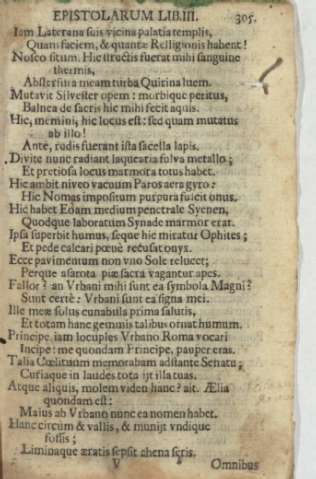 EPISTOLARUM LIB. III. 305.
Iam Laterana suis vicina palatia templis,
Quam faciem, & quantæ Relligionis habent!
Nosco situm. Hic structis fuerat mihi sanguine
thermis,
Abstersura meam turba Quirina luem.
Mutavit Silvester opem: morbique peritus,
Balnea de sacris hic mihi fecit aquis.
Hic, memini, hic locus est: sed quam mutatus
ab illo!
Ante, rudis fuerant ista sacella lapis.
Divite nunc radiant laquearia fulvo metallo;
Et pretiosa locus marmora totus habet.
Hic ambit niveo vacuum Paros aera gyro:
Hic Nomas impositum purpura fulcit onus.
Hic habet Eoam medium penetrale Syenen,
Quodque laboratum Synade marmor erat.
Ipsa superbit humus, seque hic miratur Ophites;
Et pede calcari pœnè recusat onyx.
Ecce pavimentum non vno Sole relucet;
Perque asarota piæ sacra vagantur apes.
Fallor? an Vrbani mihi sunt ea symbola Magni?
Sunt certè: Vrbani sunt ea signa mei.
Ille meæ solus cunabula prima salutis,
Et totam hanc gemmis talibus ornat humum.
Principe iam locuples Vrbano Roma vocari
Incipe: me quondam Principe, pauper eras.
Talia Cœlituum memorabam adstante Senatu;
Curiaque in laudes tota ijt illa tuas.
Atque aliquis, molem viden hanc? ait. Ælia
quondam est:
Maius ab Vrbano nunc ea nomen habet.
Hanc circum & vallis, & munijt vndique
fossis;
Liminaque æratis sepsit ahena seris.
V Omnibus